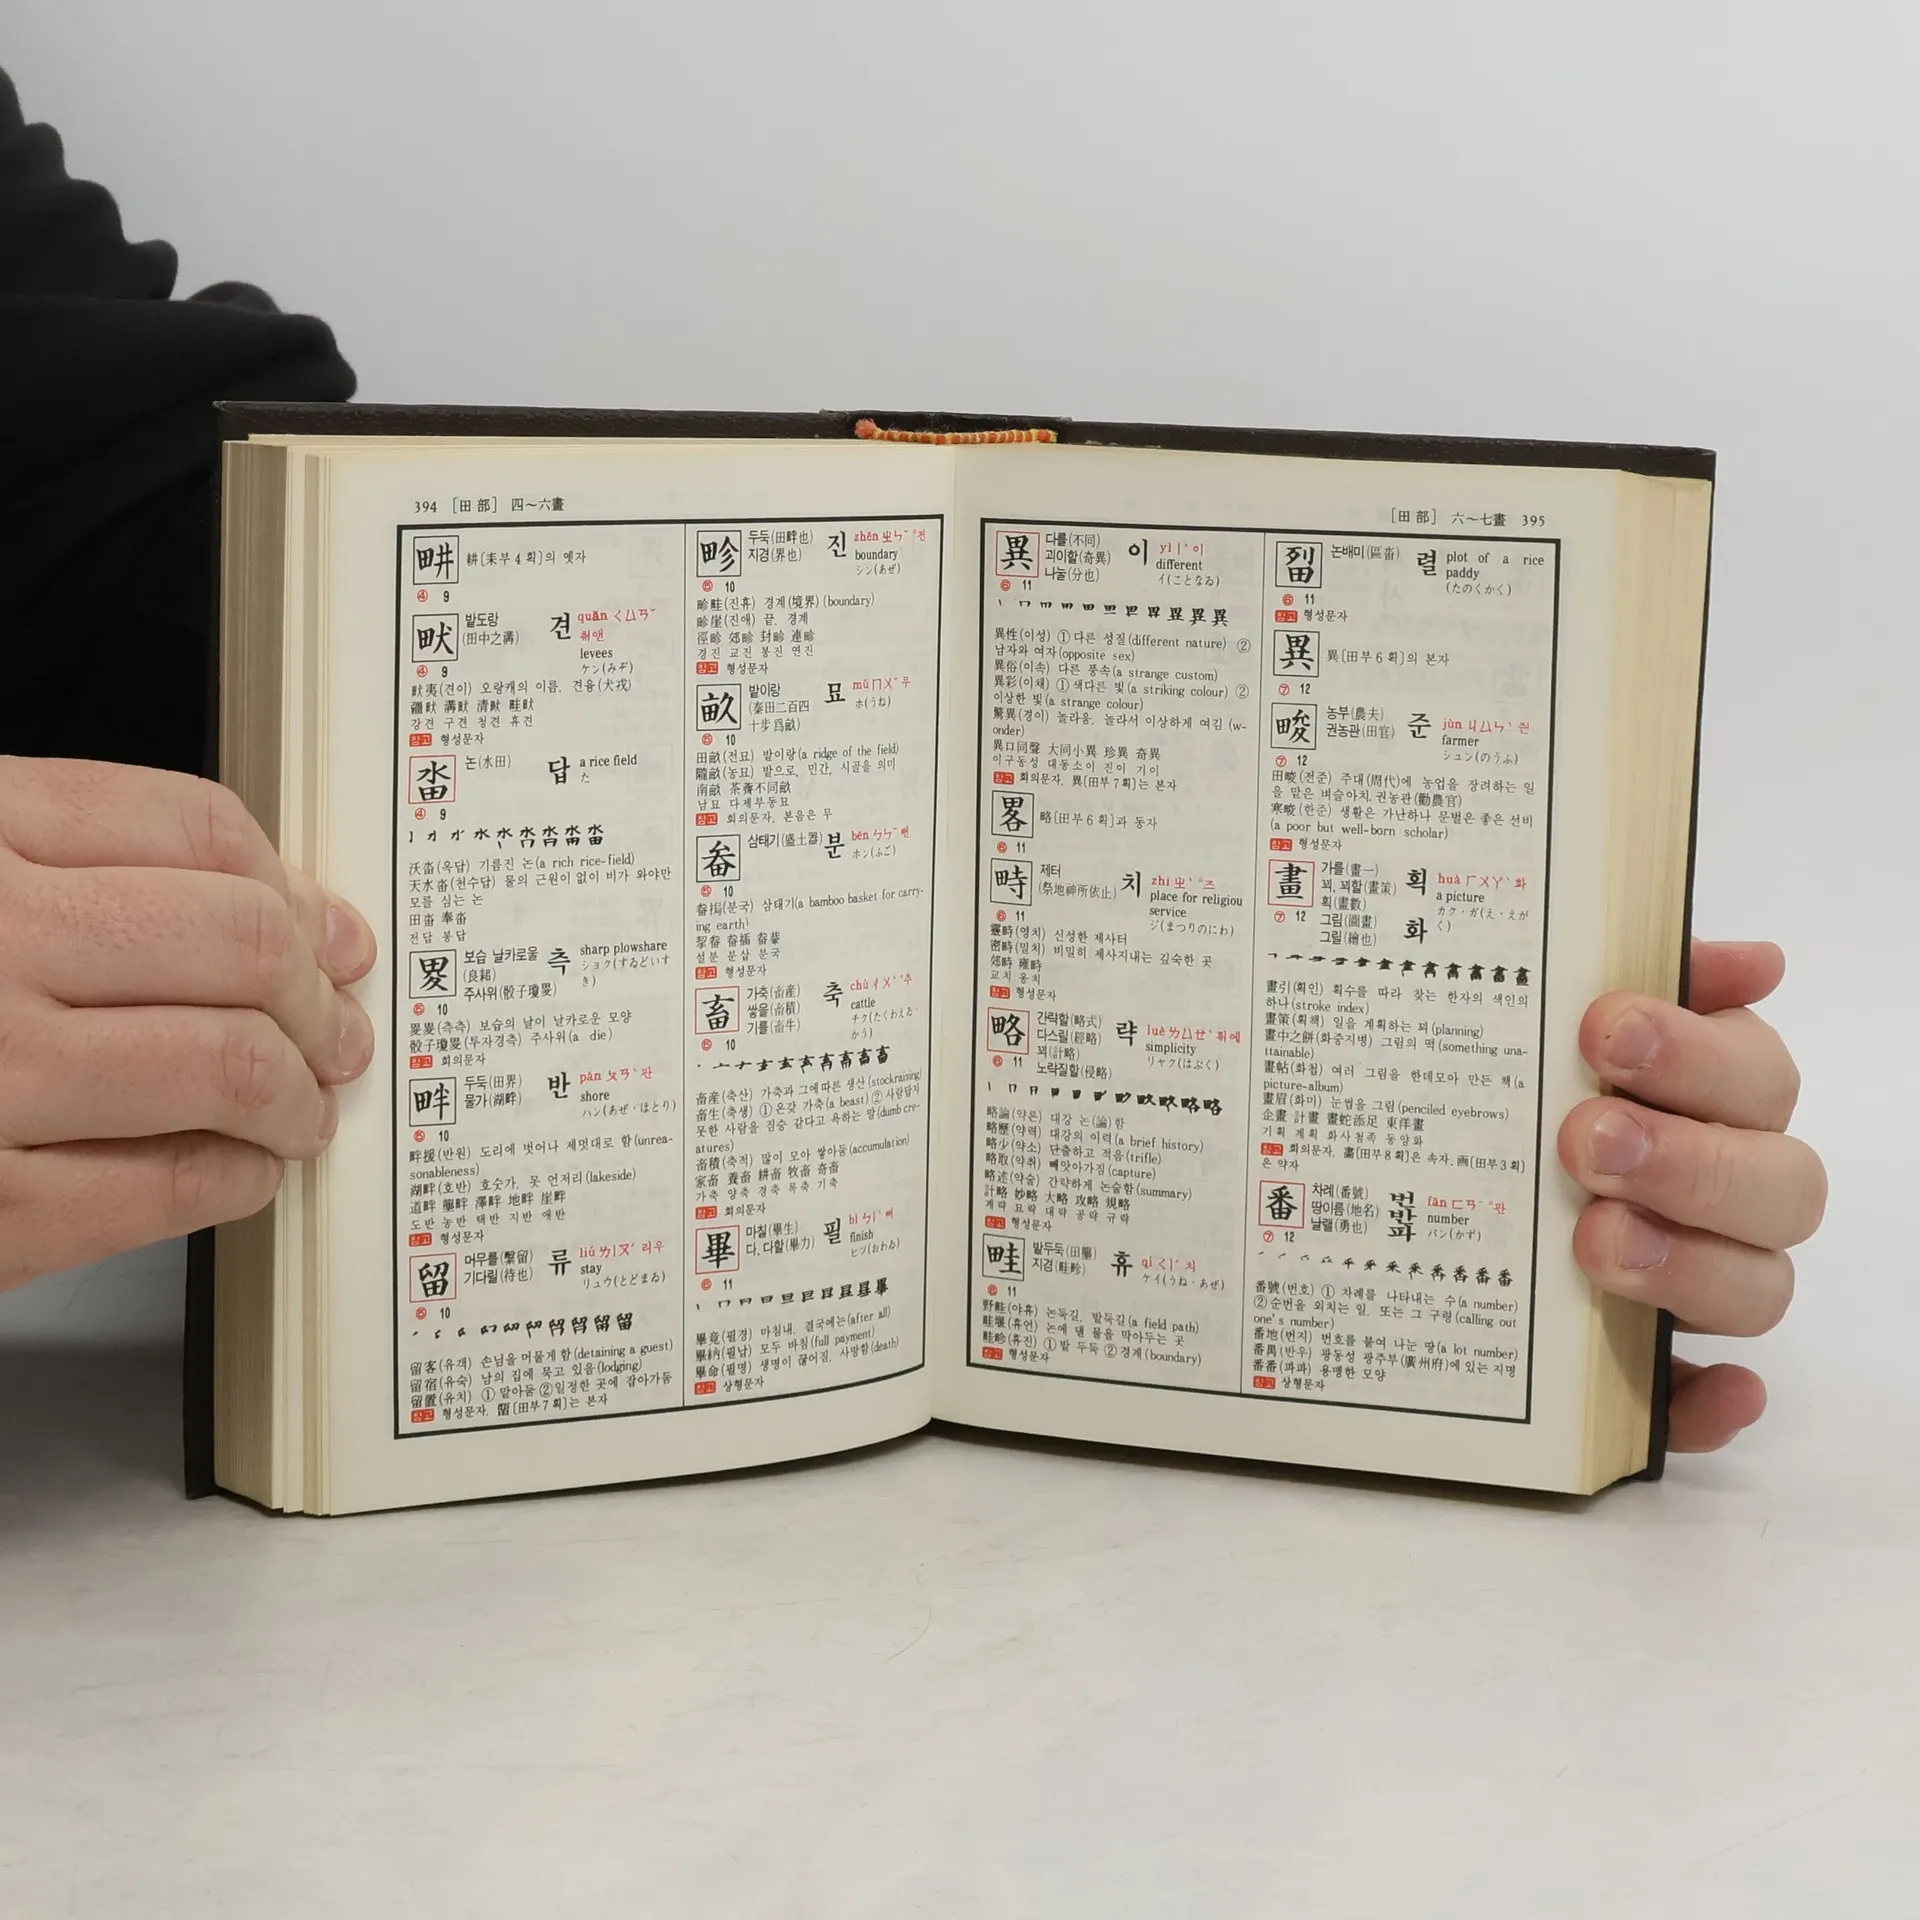 394 [田 部] 四～六畫
畊
耕[耒부 4 획]의 옛자
④ 9
畎
밭도랑
(田中之溝)
견
quǎn ㄑㄩㄢˇ
취앤
levees
ケン(みぞ)
④ 9
畎夷(견이) 오랑캐의 이름. 견융(犬戎)
疆畎 溝畎 清畎 畦畎
강견 구견 청견 휴견
참고 형성문자
畓
논(水田)
답
a rice field
た
④ 9
沃畓(옥답) 기름진 논(a rich rice-field)
天水畓(천수답) 물의 근원이 없이 비가 와야만
모를 심는 논
田畓 奉畓
전답 봉답
畟
보습 날카로울
(良耜)
주사위(骰子瓊畟)
측
sharp plowshare
ショク(すゐどいす
き)
⑤ 10
畟畟(측측) 보습의 날이 날카로운 모양
骰子瓊畟(투자경측) 주사위(a die)
참고 회의문자
畔
두둑(田界)
물가(湖畔)
반
pàn ㄆㄢˋ 판
shore
ハン(あぜ·ほとり)
⑤ 10
畔援(반원) 도리에 벗어나 제멋대로 함(unrea-
sonableness)
湖畔(호반) 호숫가, 못 언저리(lakeside)
道畔 壟畔 澤畔 地畔 崖畔
도반 농반 택반 지반 애반
참고 형성문자
留
머무를(繫留)
기다릴(待也)
류
liú ㄌㄧㄡˊ 리우
stay
リュウ(とどまゐ)
⑤ 10
留客(유객) 손님을 머물게 함(detaining a guest)
留宿(유숙) 남의 집에 묵고 있음(lodging)
留置(유치) ① 맡아둠 ②일정한 곳에 잡아가둠
참고 형성문자. 畱[田부 7 획]는 본자
畛
두둑(田畔也)
지경(界也)
진
zhěn ㄓㄣˇ 전
boundary
シン(あぜ)
⑤ 10
畛畦(진휴) 경계(境界)(boundary)
畛崖(진애) 끝. 경계
徑畛 郊畛 封畛 連畛
경진 교진 봉진 연진
참고 형성문자
畝
밭이랑
(秦田二百四
十步爲畝)
묘
mǔ ㄇㄨˇ 무
ホ(うね)
⑤ 10
田畝(전묘) 밭이랑(a ridge of the field)
隴畝(농묘) 밭으로, 민간, 시골을 의미
南畝 茶薺不同畝
남묘 다제부동묘
참고 회의문자. 본음은 무
畚
삼태기(盛土器)
분
běn ㄅㄣˇ 뻔
ホン(ふご)
⑤ 10
畚挶(분국) 삼태기(a bamboo basket for carry-
ing earth)
挈畚 畚插 畚梮
설분 분삽 분국
참고 형성문자
畜
가축(畜産)
쌓을(畜積)
기를(畜牛)
축
chù ㄔㄨˋ 추
cattle
チク(たくわえゐ·
かう)
⑤ 10
畜産(축산) 가축과 그에따른 생산(stockraising)
畜生(축생) ① 온갖 가축(a beast) ② 사람답지
못한 사람을 짐승 같다고 욕하는 말(dumb cre-
atures)
畜積(축적) 많이 모아 쌓아둠(accumulation)
家畜 養畜 耕畜 牧畜 奇畜
가축 양축 경축 목축 기축
참고 회의문자
畢
마칠(畢生)
다, 다할(畢力)
필
bì ㄅㄧˋ 삐
finish
ヒツ(おわゐ)
⑥ 11
畢竟(필경) 마침내. 결국에는(after all)
畢納(필납) 모두 바침(full payment)
畢命(필명) 생명이 끊어짐, 사망함(death)
참고 상형문자
[田 部] 六～七畫 395
異
다를(不同)
괴이할(奇異)
나눌(分也)
이
yì ㄧˋ 이
different
イ(ことなゐ)
⑥ 11
異性(이성) ① 다른 성질(different nature) ②
남자와 여자(opposite sex)
異俗(이속) 다른 풍속(a strange custom)
異彩(이채) ① 색다른 빛(a striking colour) ②
이상한 빛(a strange colour)
驚異(경이) 놀라움. 놀라서 이상하게 여김 (w-
onder)
異口同聲 大同小異 珍異 奇異
이구동성 대동소이 진이 기이
참고 회의문자. 異[田부 7획]는 본자
畧
略[田부 6 획]과 동자
⑥ 11
畤
제터
(祭地神所依止)
치
zhì ㄓˋ 즈
place for religiou
service
ジ(まつりのにわ)
⑥ 11
靈畤(영치) 신성한 제사터
密畤(밀치) 비밀히 제사지내는 깊숙한 곳
郊畤 雍畤
교치 옹치
참고 형성문자
略
간략할(略式)
다스릴(經略)
꾀(計略)
노략질할(侵略)
략
luè ㄌㄩㄝˋ 뤼에
simplicity
リャク(はぶく)
⑥ 11
略論(약론) 대강 논(論)함
略歷(약력) 대강의 이력(a brief history)
略少(약소) 단출하고 적음(trifle)
略取(약취) 빼앗아가짐(capture)
略述(약술) 간략하게 논술함(summary)
計略 妙略 大略 攻略 規略
계략 묘략 대략 공략 규략
참고 형성문자
畦
밭두둑(田壟)
지경(畦畛)
휴
qí ㄑㄧˊ 치
ケイ(うね·あぜ)
⑥ 11
野畦(야휴) 논둑길, 밭둑길(a field path)
畦堰(휴언) 논에 댈 물을 막아두는 곳
畦畛(휴진) ① 밭 두둑 ② 경계(boundary)
참고 형성문자
논배미(區畓)
렬
plot of a rice
paddy
(たのくかく)
⑥ 11
참고 형성문자
異
異[田부 6 획]의 본자
⑦ 12
畯
농부(農夫)
권농관(田官)
준
jùn ㄐㄩㄣˋ 쥔
farmer
シュン(のうふ)
⑦ 12
田畯(전준) 주대(周代)에 농업을 장려하는 일
을 맡은 벼슬아치. 권농관(勸農官)
寒畯(한준) 생활은 가난하나 문벌은 좋은 선비
(a poor but well-born scholar)
참고 형성문자
畫
가를(畫一)
꾀, 꾀할(畫策)
획(畫數)
그림(圖畫)
그릴(繪也)
획
화
huà ㄏㄨㄚˋ 화
a picture
カク·ガ(え·えが
く)
⑦ 12
畫引(획인) 획수를 따라 찾는 한자의 색인의
하나(stroke index)
畫策(획책) 일을 계획하는 꾀(planning)
畫中之餠(화중지병) 그림의 떡(something una-
ttainable)
畫帖(화첩) 여러 그림을 한데모아 만든 책(a
picture-album)
畫眉(화미) 눈썹을 그림(penciled eyebrows)
企畫 計畫 畫蛇添足 東洋畫
기획 계획 화사첨족 동양화
참고 회의문자. 畵[田부 8 획]은 속자. 画[田부 3 획]
은 약자
番
차례(番號)
땅이름(地名)
날랠(勇也)
번
반
파
fān ㄈㄢ 판
number
バン(かず)
⑦ 12
番號(번호) ① 차례를 나타내는 수(a number)
②순번을 외치는 일. 또는 그 구령(calling out
one's number)
番地(번지) 번호를 붙여 나눈 땅(a lot number)
番禺(반우) 광동성 광주부(廣州府)에 있는 지명
番番(파파) 용맹한 모양
참고 상형문자